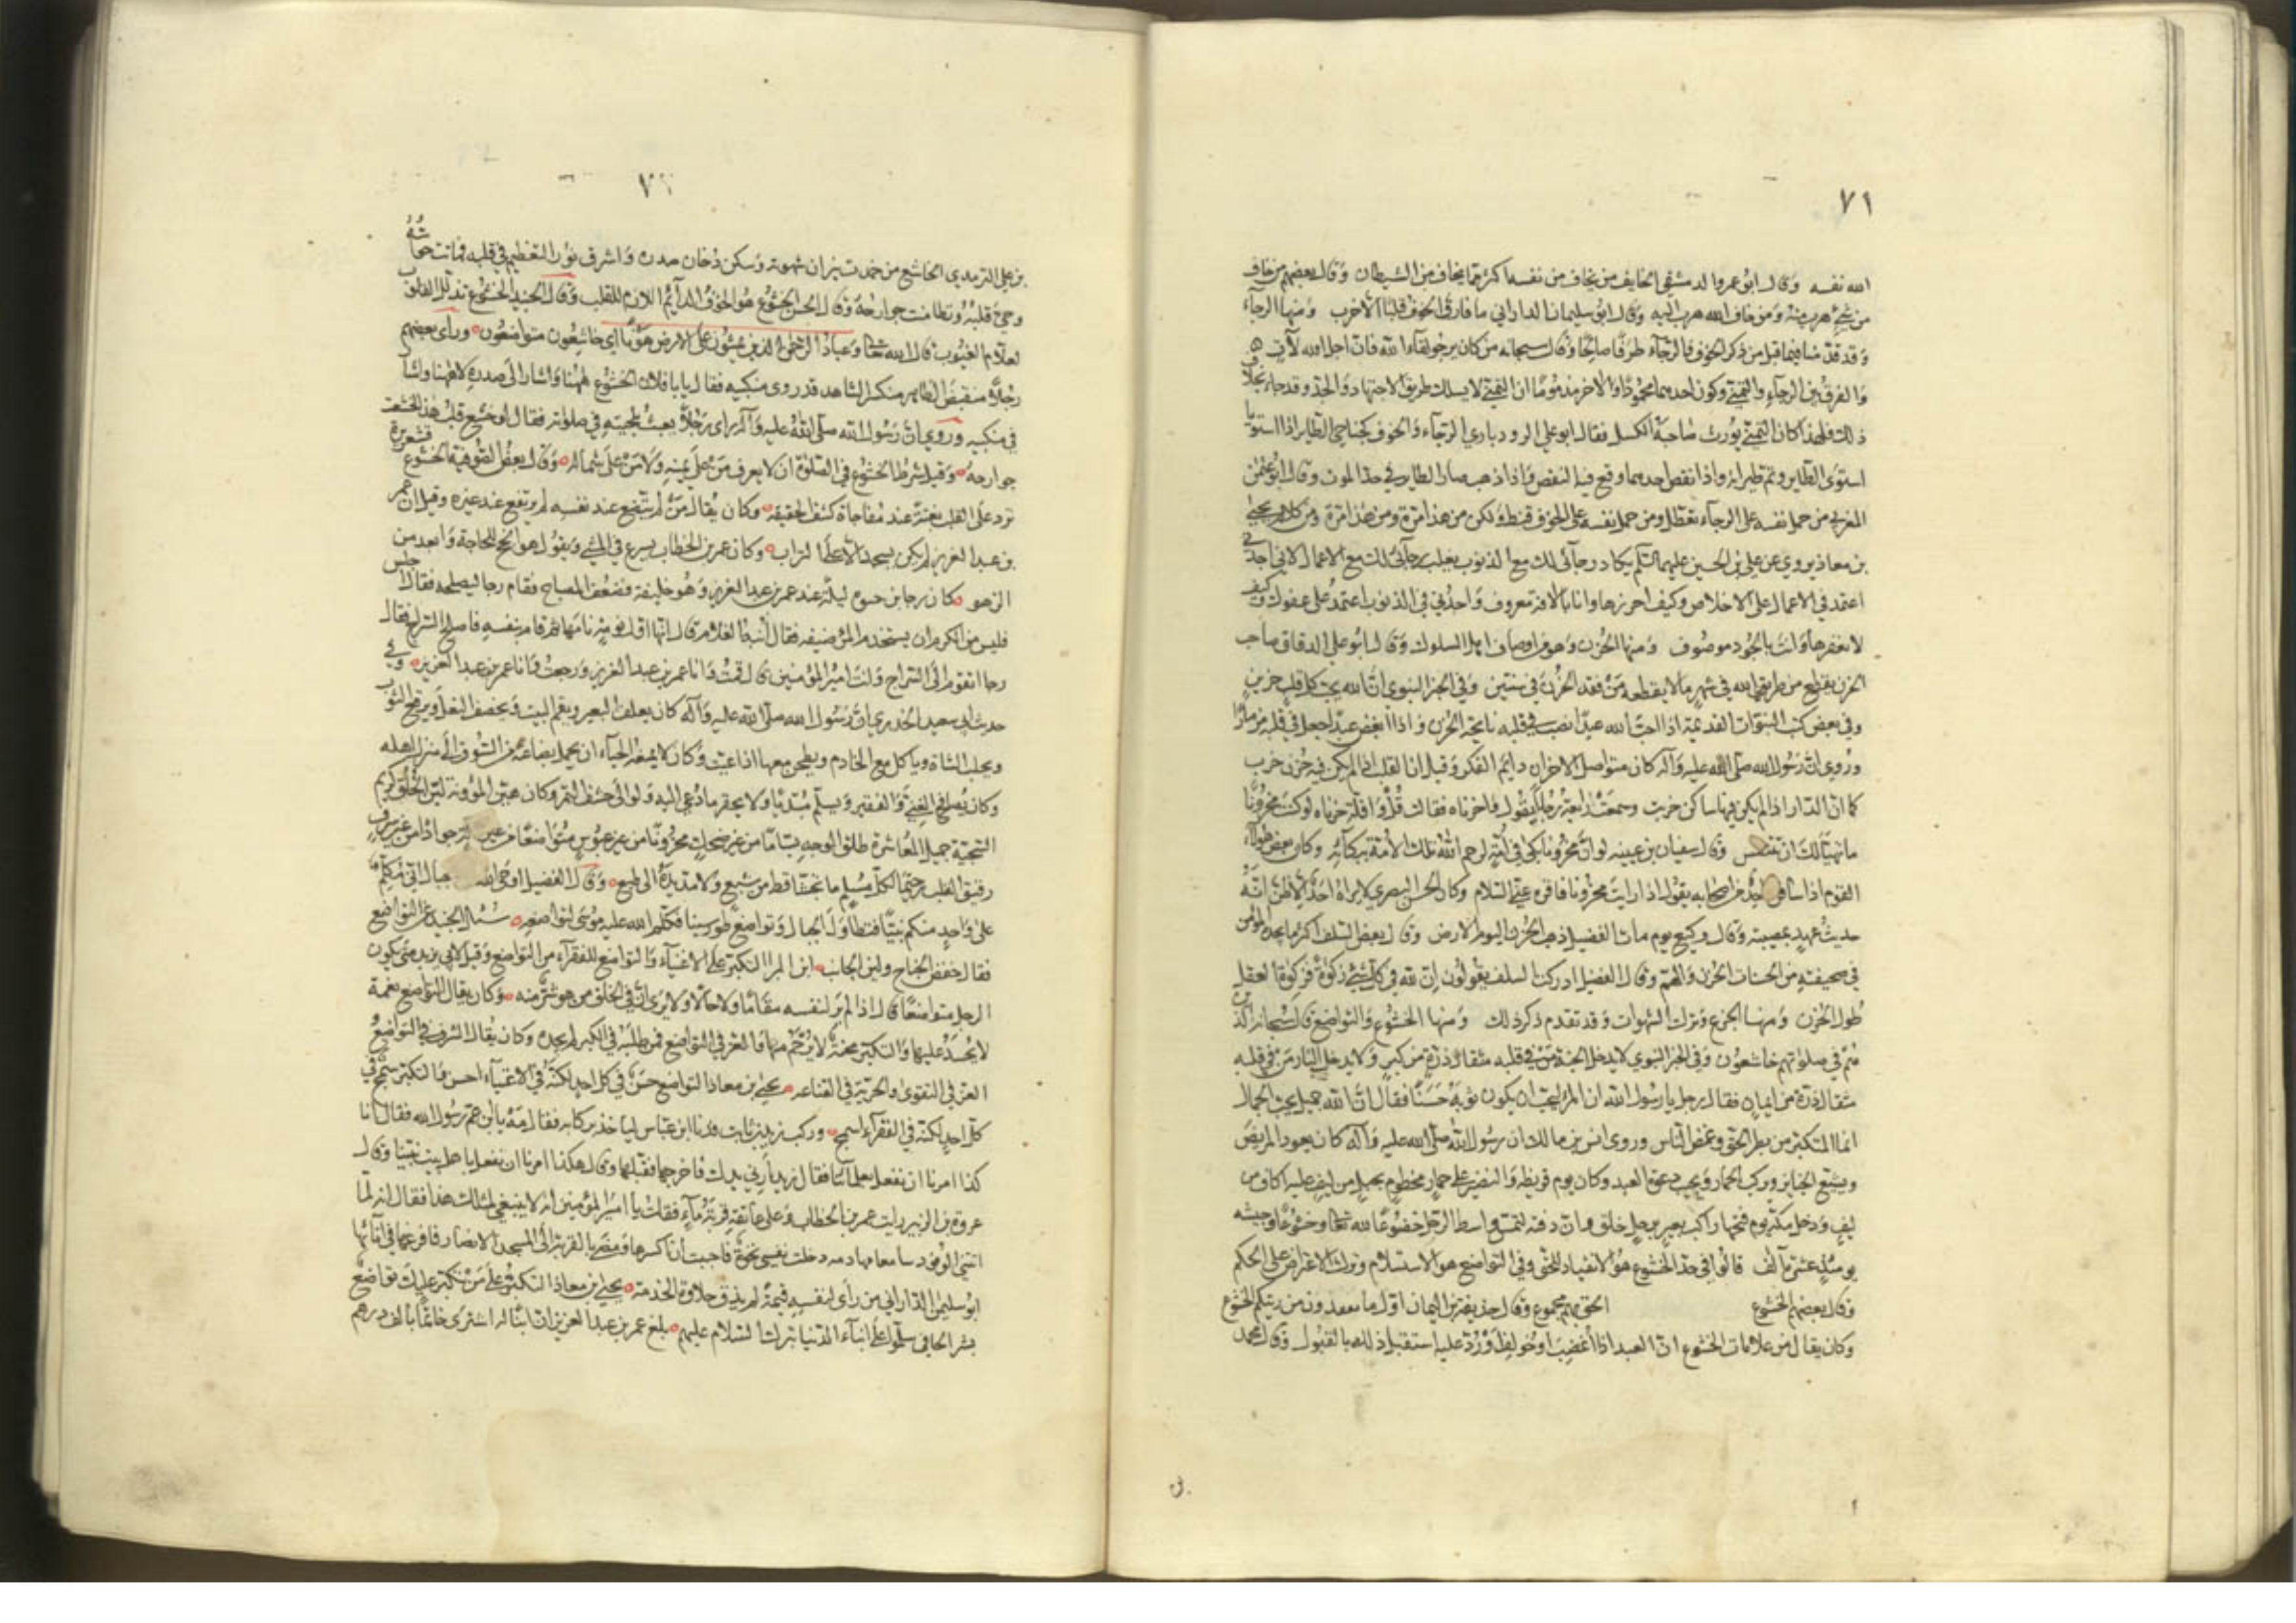 ٧١
الله نفسه وقال ابو عمرو الدمشقي الخايف من يخاف من نفسه اكثر مما يخاف من الشيطان وقال بعضهم من خاف
من شيء هرب منه ومن خاف الله هرب اليه وقال ابو سليمان الداراني ما فارق الخوف قلبا الا خرب ومنها الرجآء
وقد قدمنا فيما قبل من ذكر الخوف والرجآء طرفا صالحا وقال سبحانه من كان يرجو لقاء الله فان اجل الله لآت
والفرق بين الرجآء والتمني وكون احدهما محمودا والاخر مذموما ان التمني لا يسلك طريق الاجتهاد والجد وقد جاء بخلاف
ذلك فلهذا كان التمني يورث صاحبه الكسل فقال ابو علي الروذباري الرجآء والخوف كجناحي الطاير اذا استويا
استوى الطاير وتم طيرانه واذا نقص احدهما وقع فيه النقص واذا ذهب صار الطاير في حد الموت وقال ابو عثمن
المغربي من حمل نفسه على الرجآء تعطل ومن حمل نفسه على الخوف قنط ولكن من هذا مرة ومن هذا مرة ومن كلام يحيى
بن معاذ يروى عن علي بن الحسين عليهما السلم يكاد رجآئي لك مع الذنوب يغلب رجآئي لك مع الاعمال لاني اجدني
اعتمد في الاعمال على الاخلاص وكيف احرزها وانا بالافة معروف واجدني في الذنوب اعتمد على عفوك وكيف
لا تغفرها وانت بالجود موصوف ومنها الحزن وهو من اوصاف اهل السلوك وقال ابو علي الدقاق صاحب
الحزن يقطع من طريق الله في شهر ما لا يقطعه من فقد الحزن في سنتين وفي الخبر النبوي ان الله يحب كل قلب حزين
وفي بعض كتب النبوات القديمة اذا احب الله عبدا نصب في قلبه نايحة الحزن واذا ابغض عبدا جعل في قلبه مزمارا
وروي ان رسول الله صلى الله عليه وآله كان متواصل الاحزان دايم الفكر وقيل ان القلب اذا لم يكن فيه حزن خرب
كما ان الدار اذا لم يكن فيها ساكن خربت وسمعت رابعة رجلا يقول واحزناه فقالت قل واقلة حزناه لو كنت محزونا
ما تهيأ لك ان تتنفس وقال سفيان بن عيينه لو ان محزونا بكى في امة لرحم الله تلك الامة ببكآئه وكان بعض هؤلاء
القوم اذا سافر احد من اصحابه يقول اذا رايت محزونا فاقره عني السلام وكان الحسن البصري لا يراه احد الا ظن انه
حديث عهد بمصيبة وقال وكيع يوم مات الفضيل ذهب الحزن اليوم من الارض وقال بعض السلف اكثر ما يجده المؤمن
في صحيفته من الحسنات الحزن والهم وقال الفضيل ادركت السلف يقولون ان لله في كل شئ زكوة وزكوة العقل
طول الحزن ومنها الجوع وترك الشهوات وقد تقدم ذكر ذلك ومنها الخشوع والتواضع قال سبحانه الذين
هم في صلوتهم خاشعون وفي الخبر النبوي لا يدخل الجنة من في قلبه مثقال ذرة من كبر ولا يدخل النار من في قلبه
مثقال ذرة من ايمان فقال رجل يا رسول الله ان المرء ليحب ان يكون ثوبه حسنا فقال ان الله جميل يحب الجمال
انما المتكبر من بطر الحق وغمص الناس وروى انس بن مالك ان رسول الله صلى الله عليه وآله كان يعود المريض
ويشيع الجنايز ويركب الحمار ويجيب دعوة العبد وكان يوم قريظه والنضير على حمار مخطوم بحبل من ليف عليه اكاف من
ليف ودخل مكة يوم فتحها راكب بعير برحل خلق وان ذقنه لتمس واسط الرحل خضوعا لله تعالى وخشوعا وجيشه
يومئذ عشرة آلاف قالوا في حد الخشوع هو الانقياد للحق وفي التواضع هو الاستسلام وترك الاعتراض على الحكم
وقال بعضهم الخشوع الحق بهم مجموع وقال حذيفة بن اليمان اول ما تفقدون من دينكم الخشوع
وكان يقال من علامات الخشوع ان العبد اذا اغضب او خولف او رد عليه استقبل ذلك بالقبول وقال محمد
٧٢
بن علي الترمذي الخاشع من خمدت نيران شهوته وسكن دخان صدره واشرق نور التعظيم في قلبه فماتت حواسه
وحيي قلبه وتطامنت جوارحه وقال الحسن الخشوع هو الخوف الدآئم اللازم للقلب وقال الجنيد الخشوع تذلل القلوب
لعلام الغيوب قال الله تعالى وعباد الرحمن الذين يمشون على الارض هونا اي خاشعون متواضعون ورأى بعضهم
رجلا منقبض الظاهر منكسر الشاهد قد زوى منكبيه فقال يا با فلان الخشوع ههنا واشار الى صدره لا ههنا واشار
في منكبيه وروي ان رسول الله صلى الله عليه وآله راى رجلا يعبث بلحيته في صلوته فقال لو خشع قلب هذا لخشعت
جوارحه وقيل شرط الخشوع في الصلوة ان لا يعرف من على يمينه ولا من على شماله وقال بعض الصوفية الخشوع قشعريرة
ترد على القلب بغتة عند مفاجاة كشف الحقيقه وكان يقال من لم يتضع عند نفسه لم يرتفع عند غيره وقيل ان عمر
بن عبد العزيز لم يكن يسجد الا على التراب وكان عمر بن الخطاب يسرع في المشي ويقول هو انجح للحاجة وابعد من
الزهو كان رجا بن حيوه ليلة عند عمر بن عبد العزيز وهو خليفة فضعف المصباح فقام رجا ليصلحه فقال اجلس
فليس من الكرم ان يستخدم المرء ضيفه فقال أنبه الغلام قال انها اول نومة نامها ثم قام بنفسه فاصلح السراج فقال
رجا اتقوم الى السراج وانت امير المؤمنين قال قمت وانا عمر بن عبد العزيز ورجعت وانا عمر بن عبد العزيز وفي
حديث ابي سعيد الخدري ان رسول الله صلى الله عليه وآله كان يعلف البعير ويقم البيت ويخصف النعل ويرقع الثوب
ويحلب الشاة وياكل مع الخادم ويطحن معها اذا اعيت وكان لا يمنعه الحياء ان يحمل بضاعة من السوق الى منزل اهله
وكان يصافح الغني والفقير ويسلم مبتديا ولا يحقر ما دعي اليه ولو الى حشف التمر وكان هين المؤونة لين الخلق كريم
السجية جميل المعاشرة طلق الوجه بساما من غير ضحك محزونا من غير عبوس متواضعا من غير جوادا من غير سرف
رقيق القلب رحيما لكل مسلم ما تجشأ قط من شبع ولا مد يده الى طمع وقال الفضيل اوحى الله جبال اني مكلم
على واحد منكم نبيا فتطاولت الجبال وتواضع طور سينا فكلم الله عليه موسى لتواضعه سئل الجنيد عن التواضع
فقال خفض الجناح ولين الجانب ابن المبارك التكبر على الاغنيآء والتواضع للفقرآء من التواضع وقيل لابي يزيد متى يكون
الرجل متواضعا قال اذا لم ير لنفسه مقاما ولا حالا ولا يرى ان في الخلق من هو شر منه وكان يقال التواضع نعمة
لا يحسد عليها والتكبر محنة لا يرحم منها والعز في التواضع فمن طلبه في الكبر لم يجده وكان يقال الشرف في التواضع
والعز في التقوى والحرية في القناعه يحيى بن معاذ التواضع حسن في كل احد لكنه في الاغنيآء احسن والتكبر سمج في
كل احد لكنه في الفقرآء اسمج وركب زيد بن ثابت فدنا ابن عباس لياخذ بركابه فقال مه يا بن عم رسول الله فقال انا
كذا امرنا ان نفعل بعلمآئنا فقال زيد أرني يدك فاخرجها فقبلها وقال هكذا امرنا ان نفعل باهل بيت نبينا وقال
عروة بن الزبير رايت عمر بن الخطاب وعلى عاتقه قربة مآء فقلت يا امير المؤمنين انه لا ينبغي لمثلك هذا فقال انه لما
اتتني الوفود سامعة مهادنه دخلت نفسي نخوة فاحببت ان اكسرها ومضى بالقربة الى المسجد الانصار فافرغها في انآئها
ابو سليمن الداراني من رأى لنفسه قيمة لم يذق حلاوة الخدمة يحيى بن معاذ التكبر على من تكبر عليك تواضع
بشر الحافي سلموا على ابناء الدنيا بترك السلام عليهم بلغ عمر بن عبد العزيز ان ابنا له اشترى خاتما بالف درهم